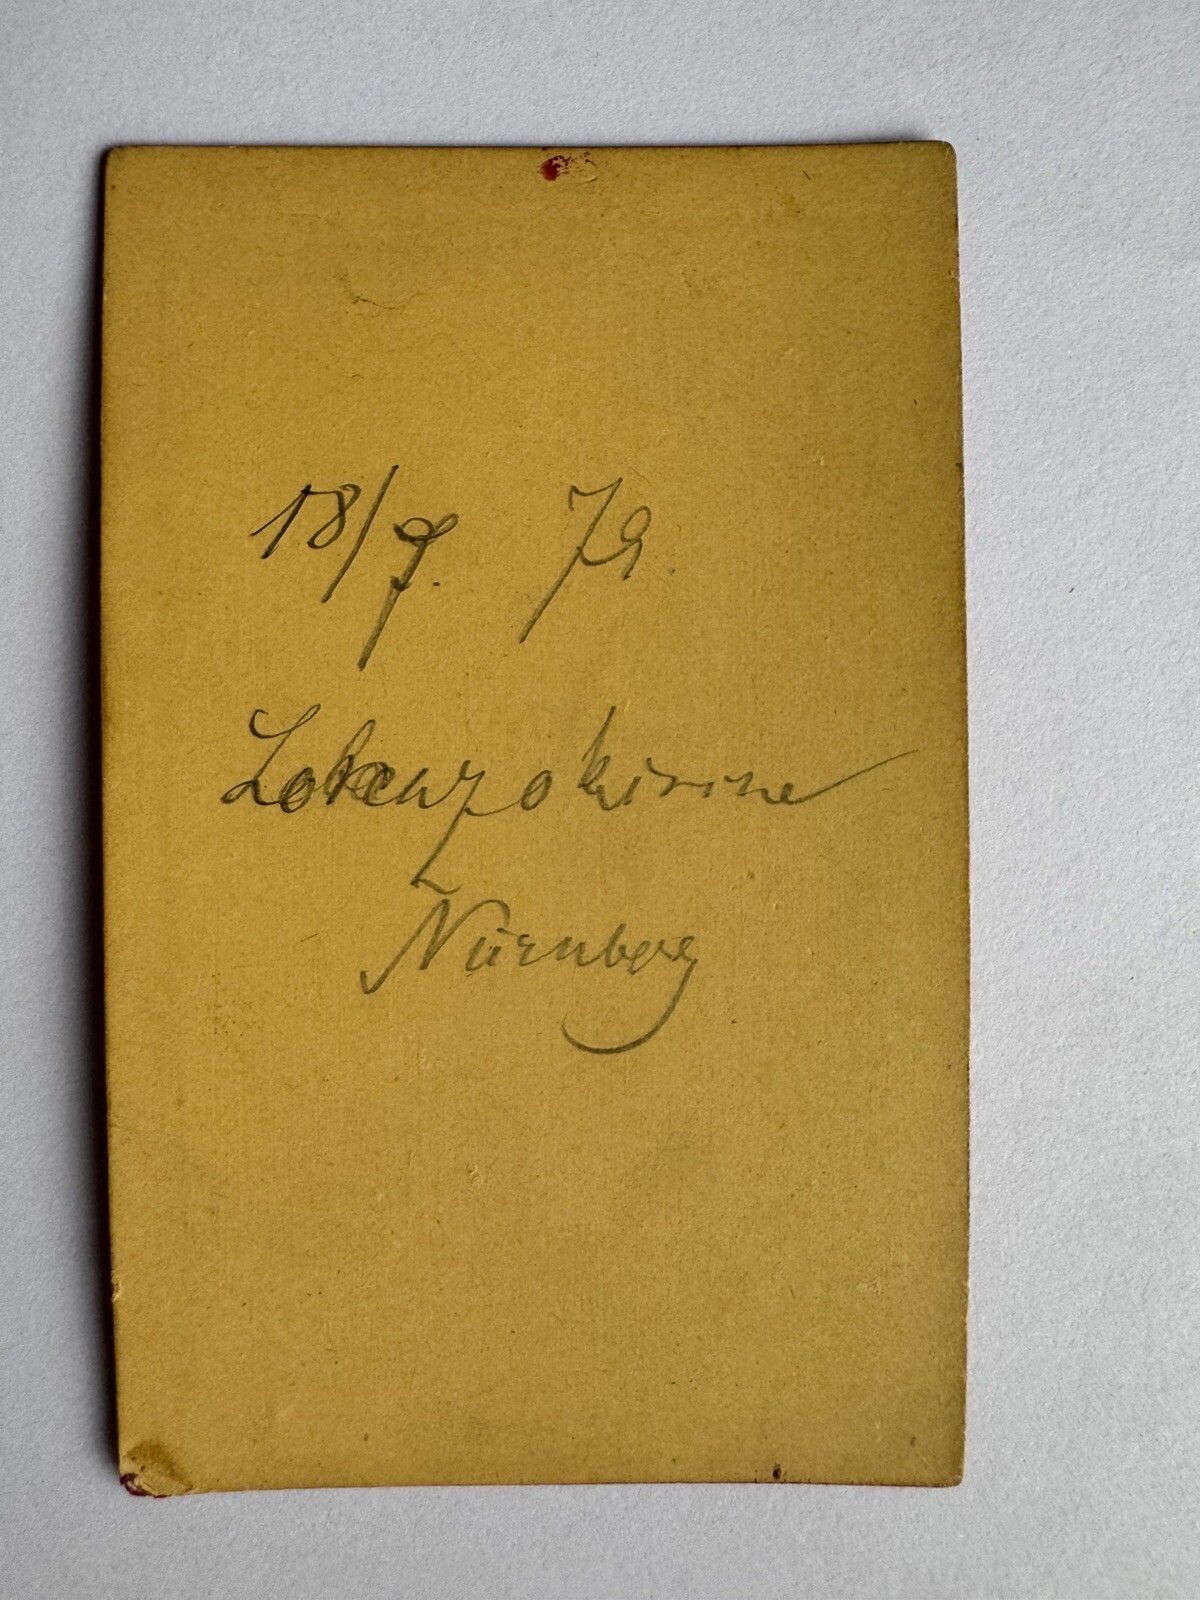 18/7. 79.
Lorenzokirche
Nürnberg